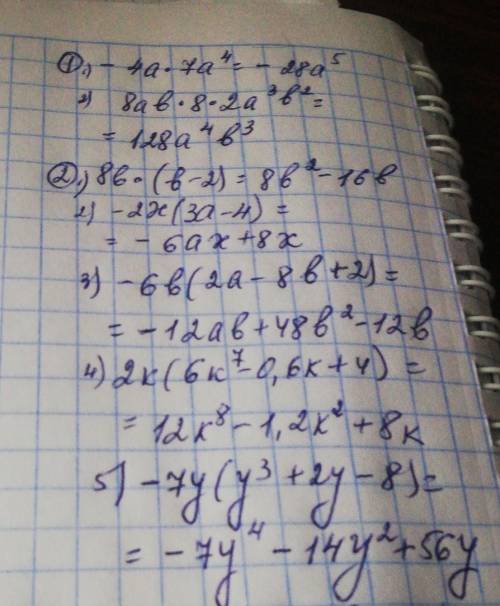 ① 1) - 4a · 7a⁴ = - 28a⁵
2) 8ab · 8 · 2a³b² =
= 128a⁴b³
② 1) 8b · (b - 2) = 8b² - 16b
2) -2x(3a - 4) =
= - 6ax + 8x
3) -6b(2a - 8b + 2) =
= -12ab + 48b² - 12b
4) 2к(6к⁷ - 0,6к + 4) =
= 12к⁸ - 1,2к² + 8к
5) -7y(y³ + 2y - 8) =
= -7y⁴ - 14y² + 56y